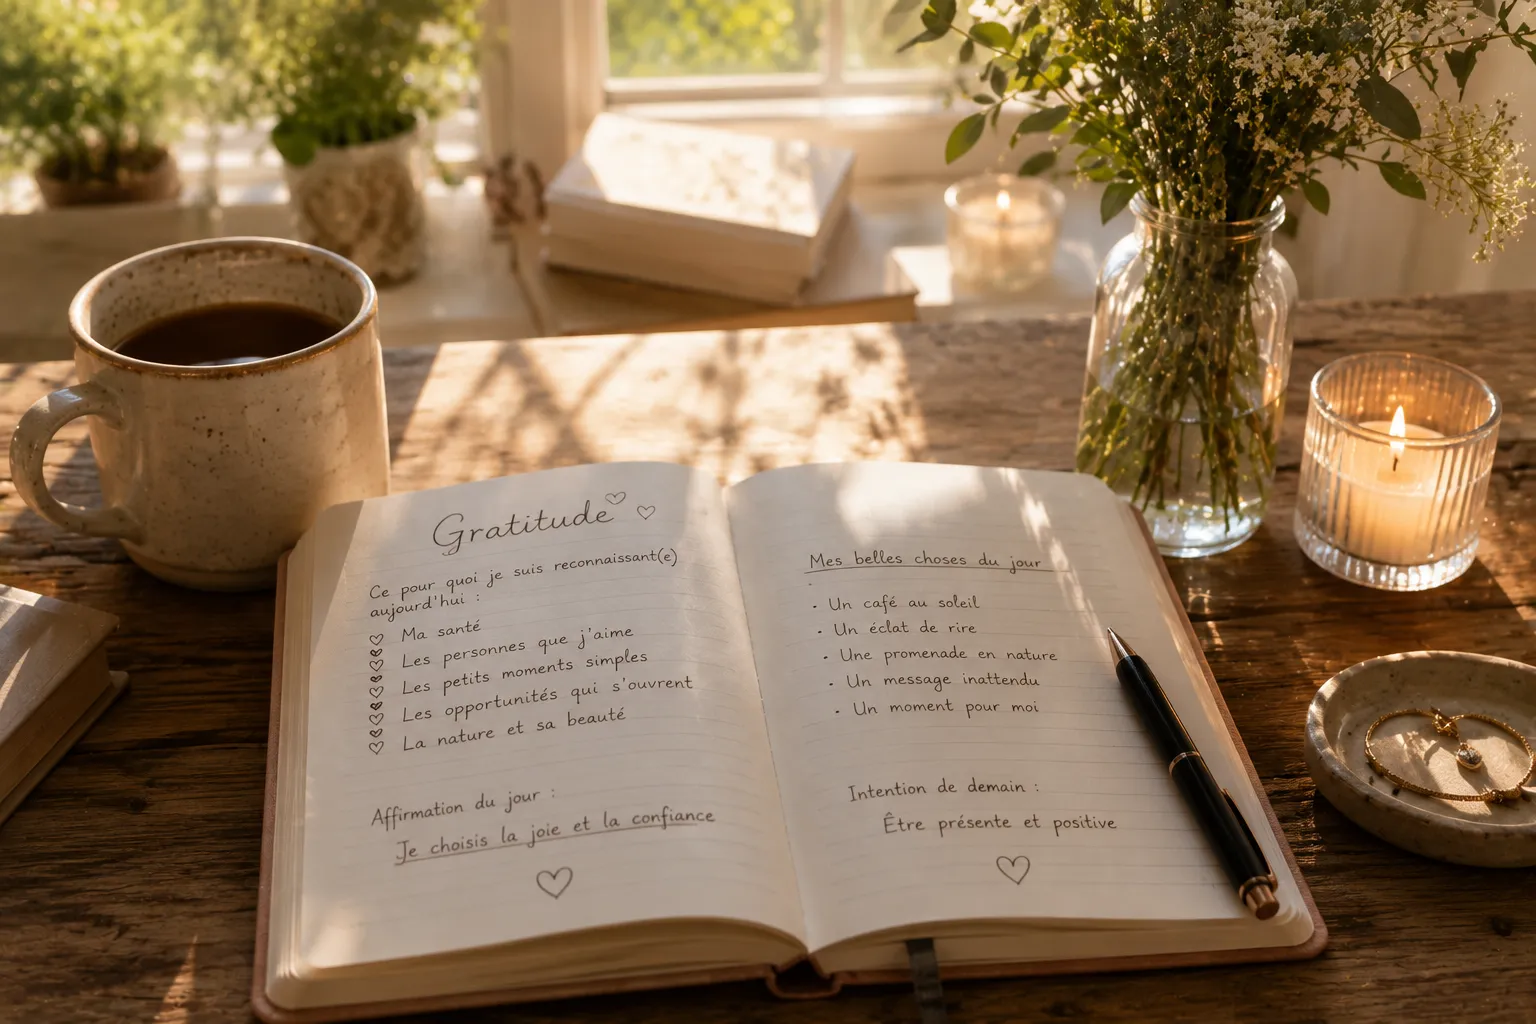 Gratitude
Ce pour quoi je suis reconnaissant(e)
aujourd'hui :
Ma santé
Les personnes que j'aime
Les petits moments simples
Les opportunités qui s'ouvrent
La nature et sa beauté
Affirmation du jour :
Je choisis la joie et la confiance
Mes belles choses du jour
· Un café au soleil
· Un éclat de rire
· Une promenade en nature
· Un message inattendu
· Un moment pour moi
Intention de demain :
Être présente et positive